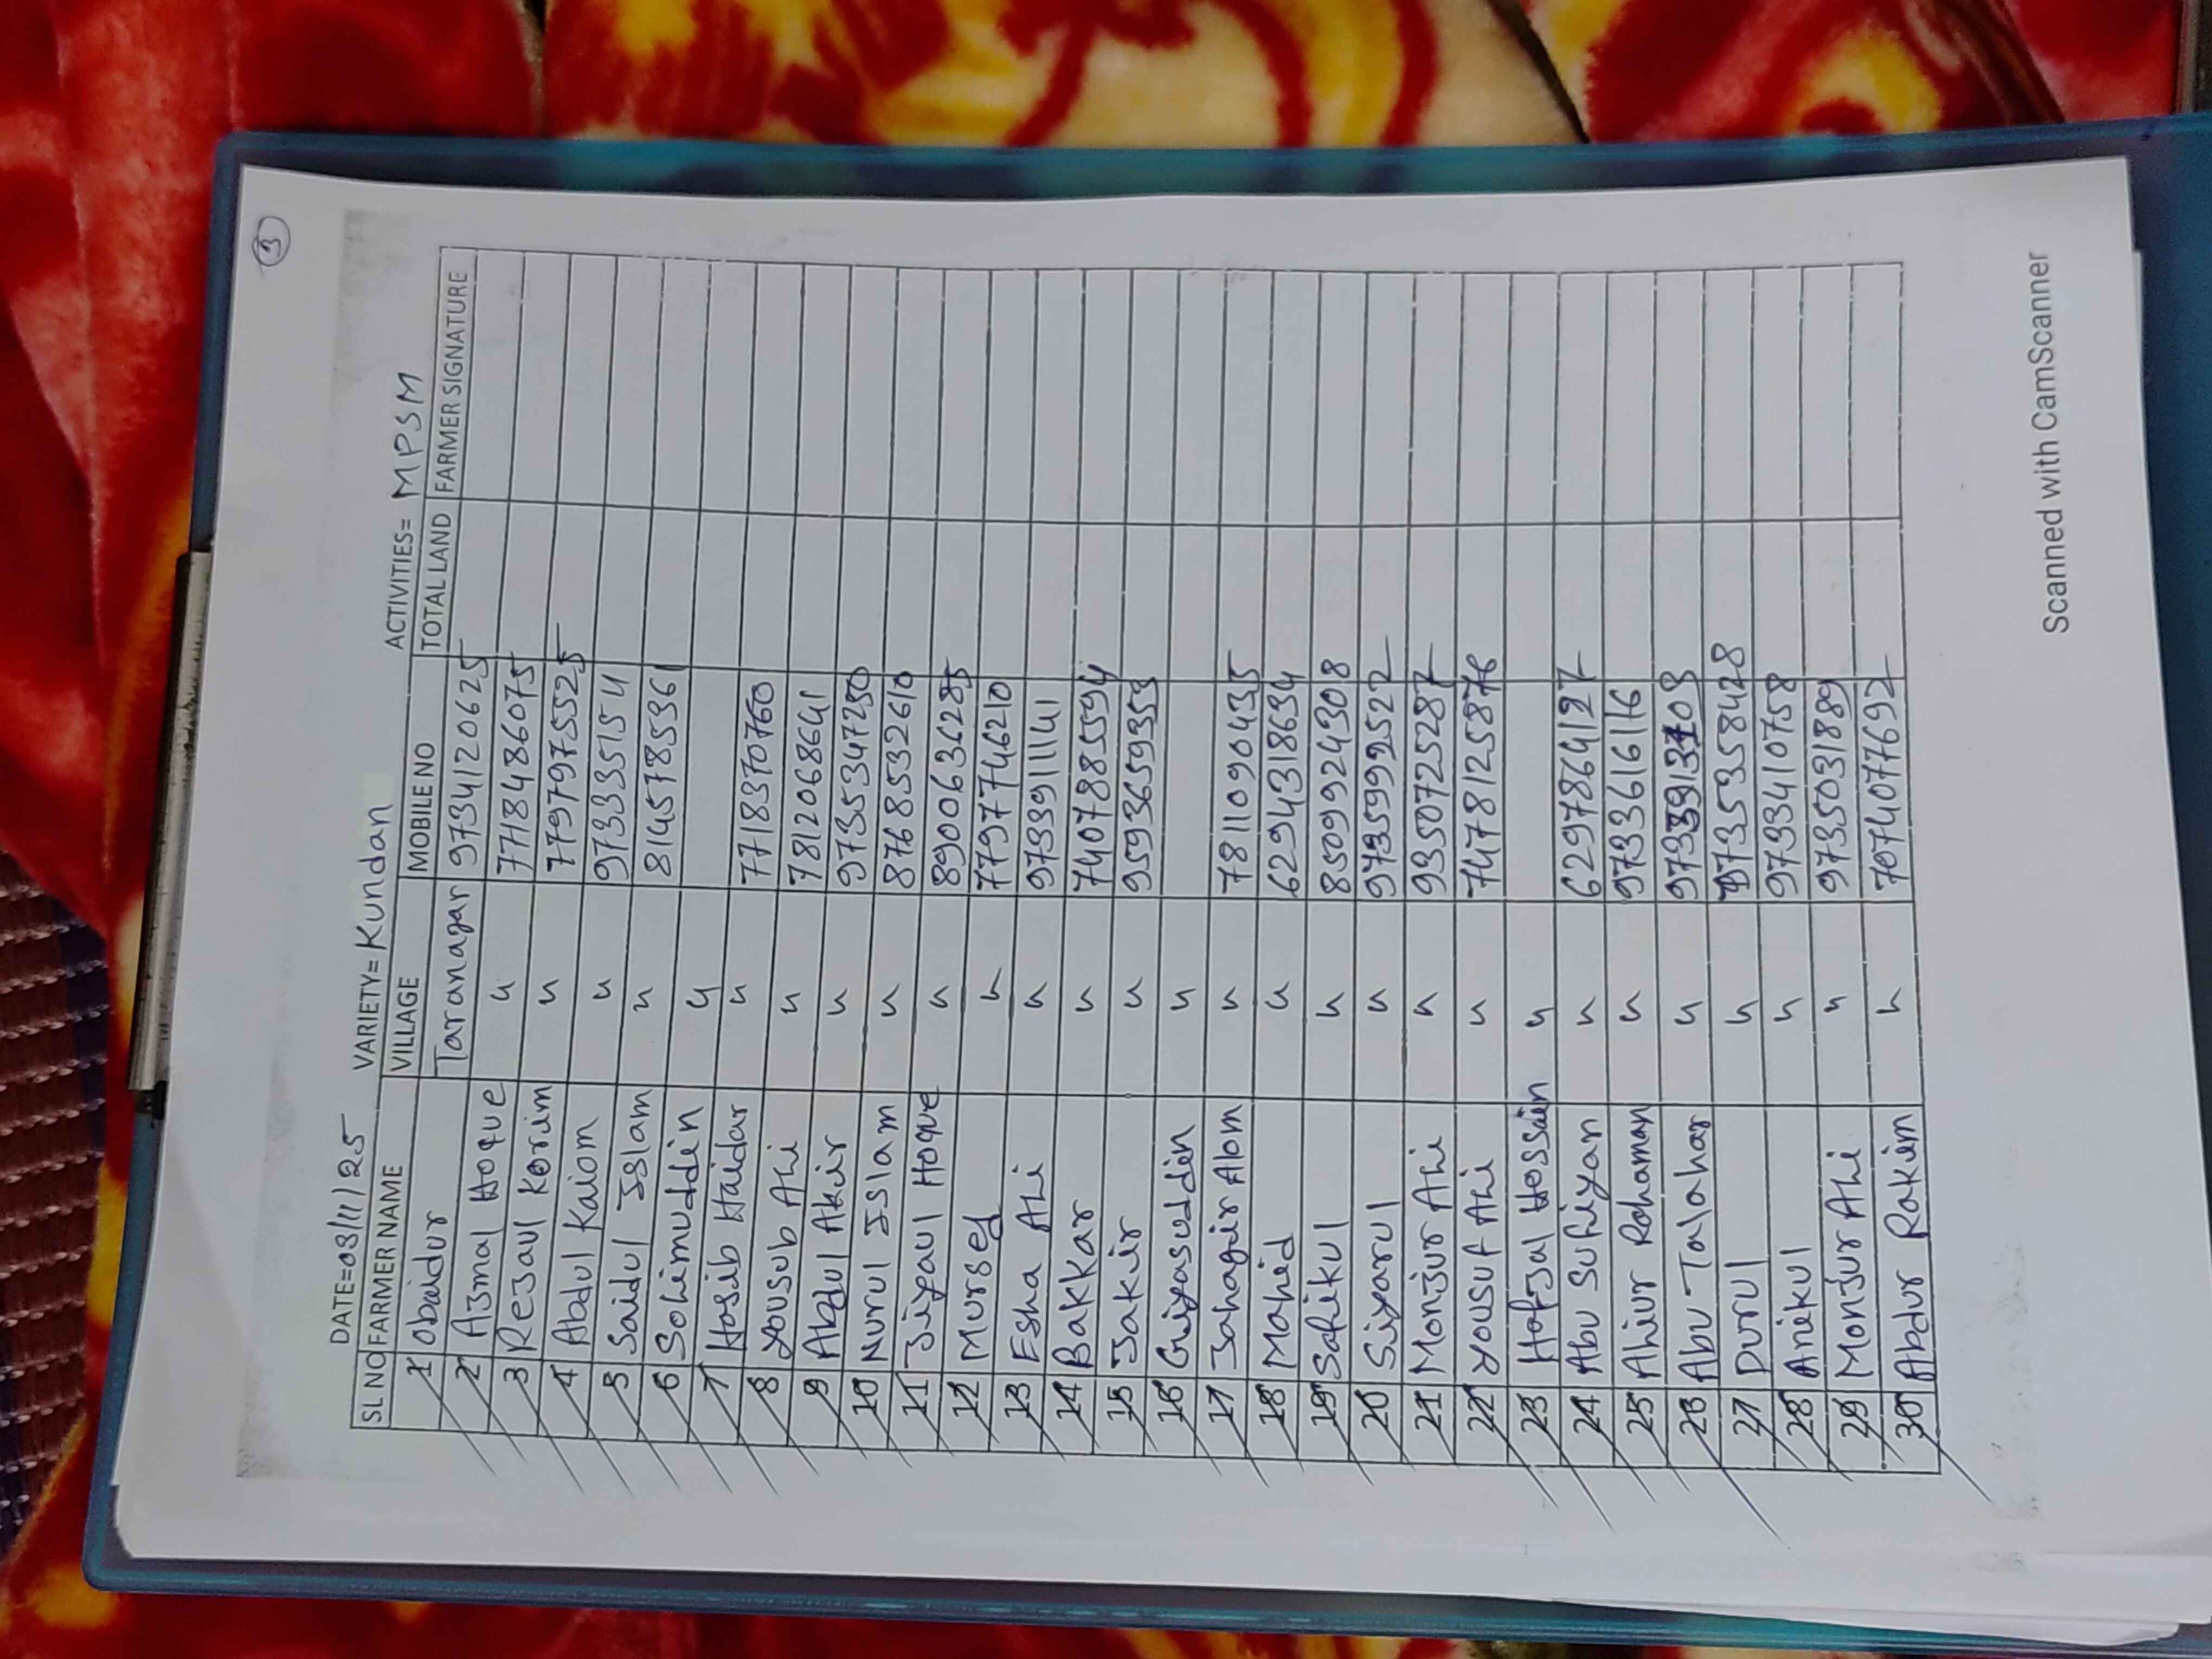 3
DATE=03/11/25 VARIETY=Kundan ACTIVITIES= MPSM
SL NO FARMER NAME VILLAGE MOBILE NO TOTAL LAND FARMER SIGNATURE
1 Obaidur Taranagar 9734120625
2 Azmal Hoque " 7718486075
3 Rejaul Korim " 7797975525
4 Abdul Kaiom " 9733355154
5 Saidul Islam " 8145785361
6 Sohimuddin "
7 Hosib Haidar " 7718370760
8 Yousub Ali " 7812068641
9 Abdul Akir " 9735347250
10 Nurul Islam " 8768532610
11 Jiyaul Hoque " 8900636285
12 Mursed " 7797746210
13 Esha Ali " 9733911141
14 Bakkar " 7407885594
15 Jakir " 9593659353
16 Giyasuddin "
17 Jahagir Alom " 7811090435
18 Mahid " 6294318634
19 Safikul " 8509924308
20 Siyarul " 9735992522
21 Monjur Ali " 9350725287
22 Yousuf Ali " 7478125876
23 Hafjal Hossain "
24 Abu Sufiyan " 6297864127
25 Ahiur Rohaman " 9733616116
26 Abu Talahar "
27 Durul " 9735358428
28 Anikul " 9733410758
29 Monjur Ali " 9735031889
30 Abdur Rakim " 7074077692
Scanned with CamScanner